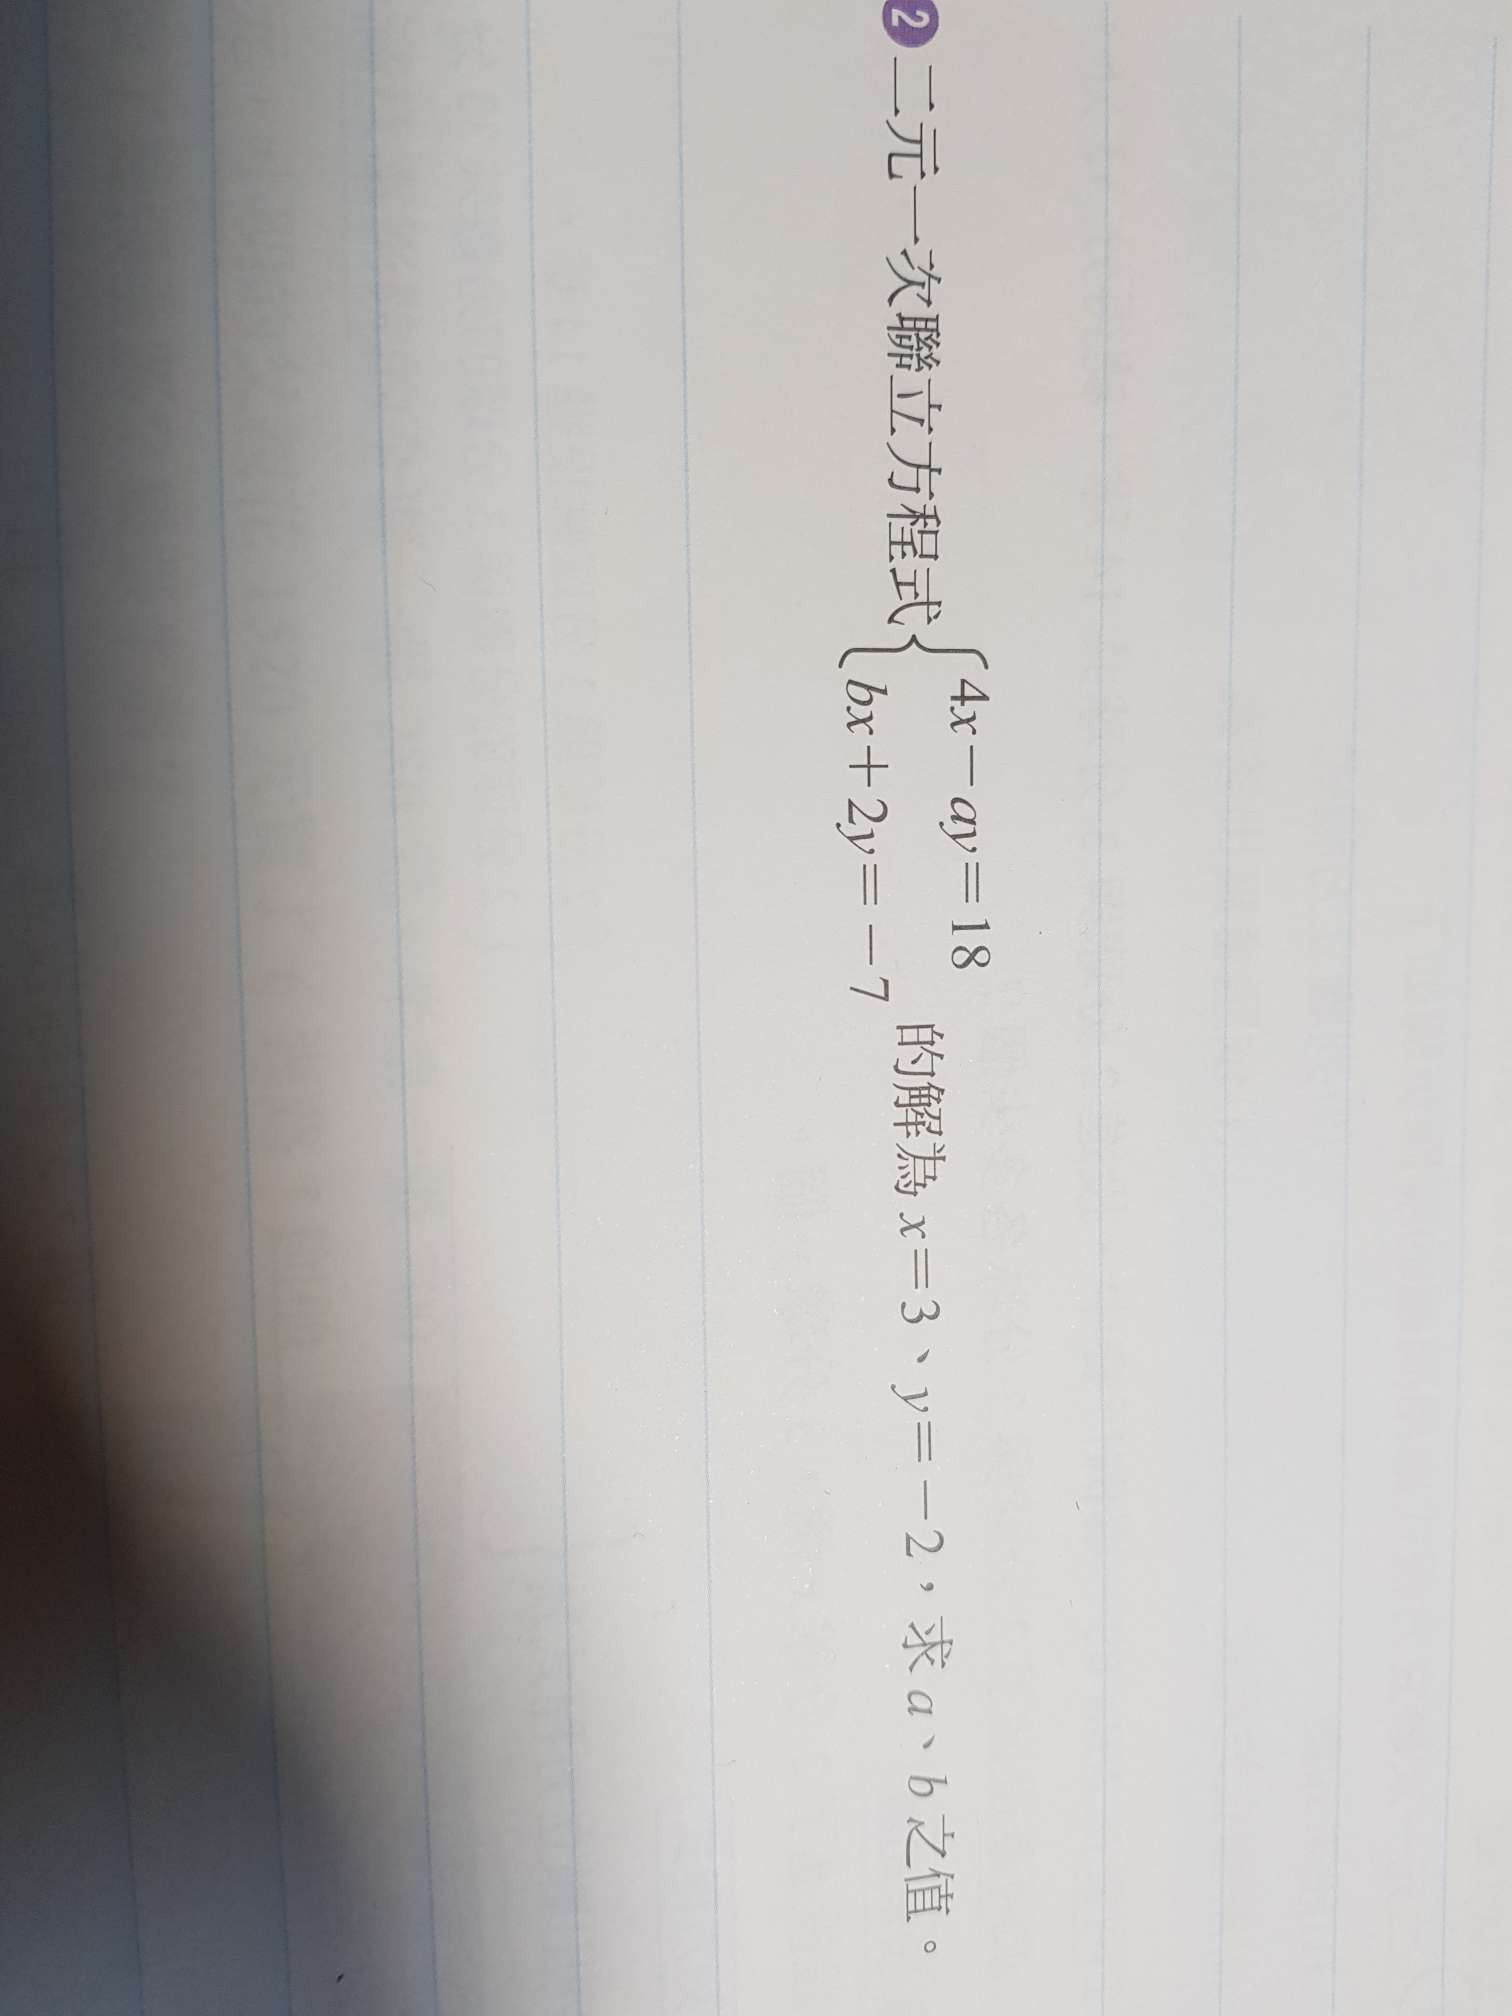 2 二元一次聯立方程式{4x－ay＝18
bx＋2y＝－7 的解為 x＝3、y＝－2，求 a、b 之值。